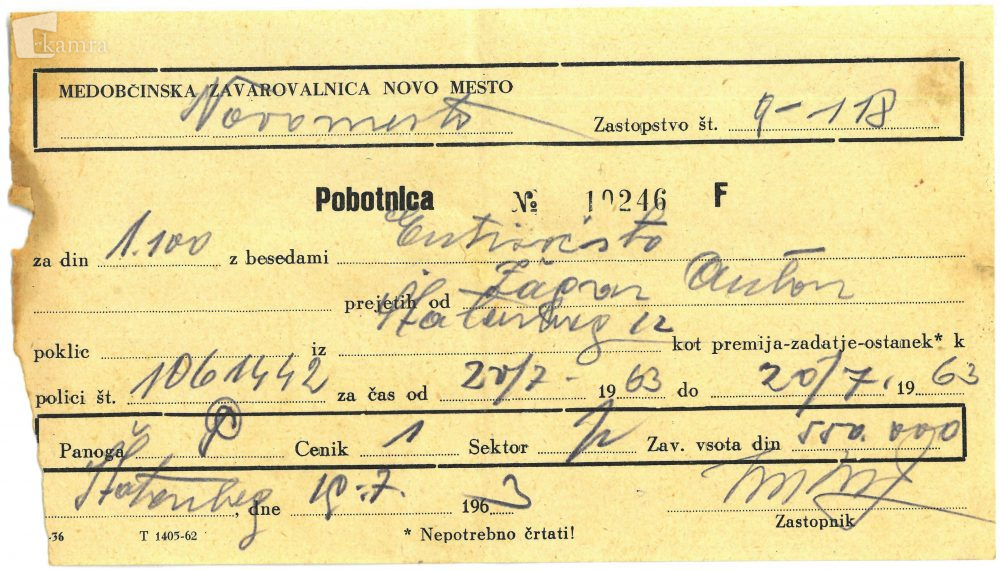 kamra
MEDOBČINSKA ZAVAROVALNICA NOVO MESTO
Novo mesto Zastopstvo št. 9-118
Pobotnica № 10246 F
za din 1.100 z besedami
prejetih od Žagar Anton
poklic iz Štatenberg 12 kot premija-zadatje-ostanek* k
polici št. 1061442 za čas od 20/7- 1963 do 20/7. 1963
Panoga P Cenik 1 Sektor Zav. vsota din
Štatenberg, dne 18.7. 1963
Zastopnik
-36 T 1405-62 * Nepotrebno črtati!